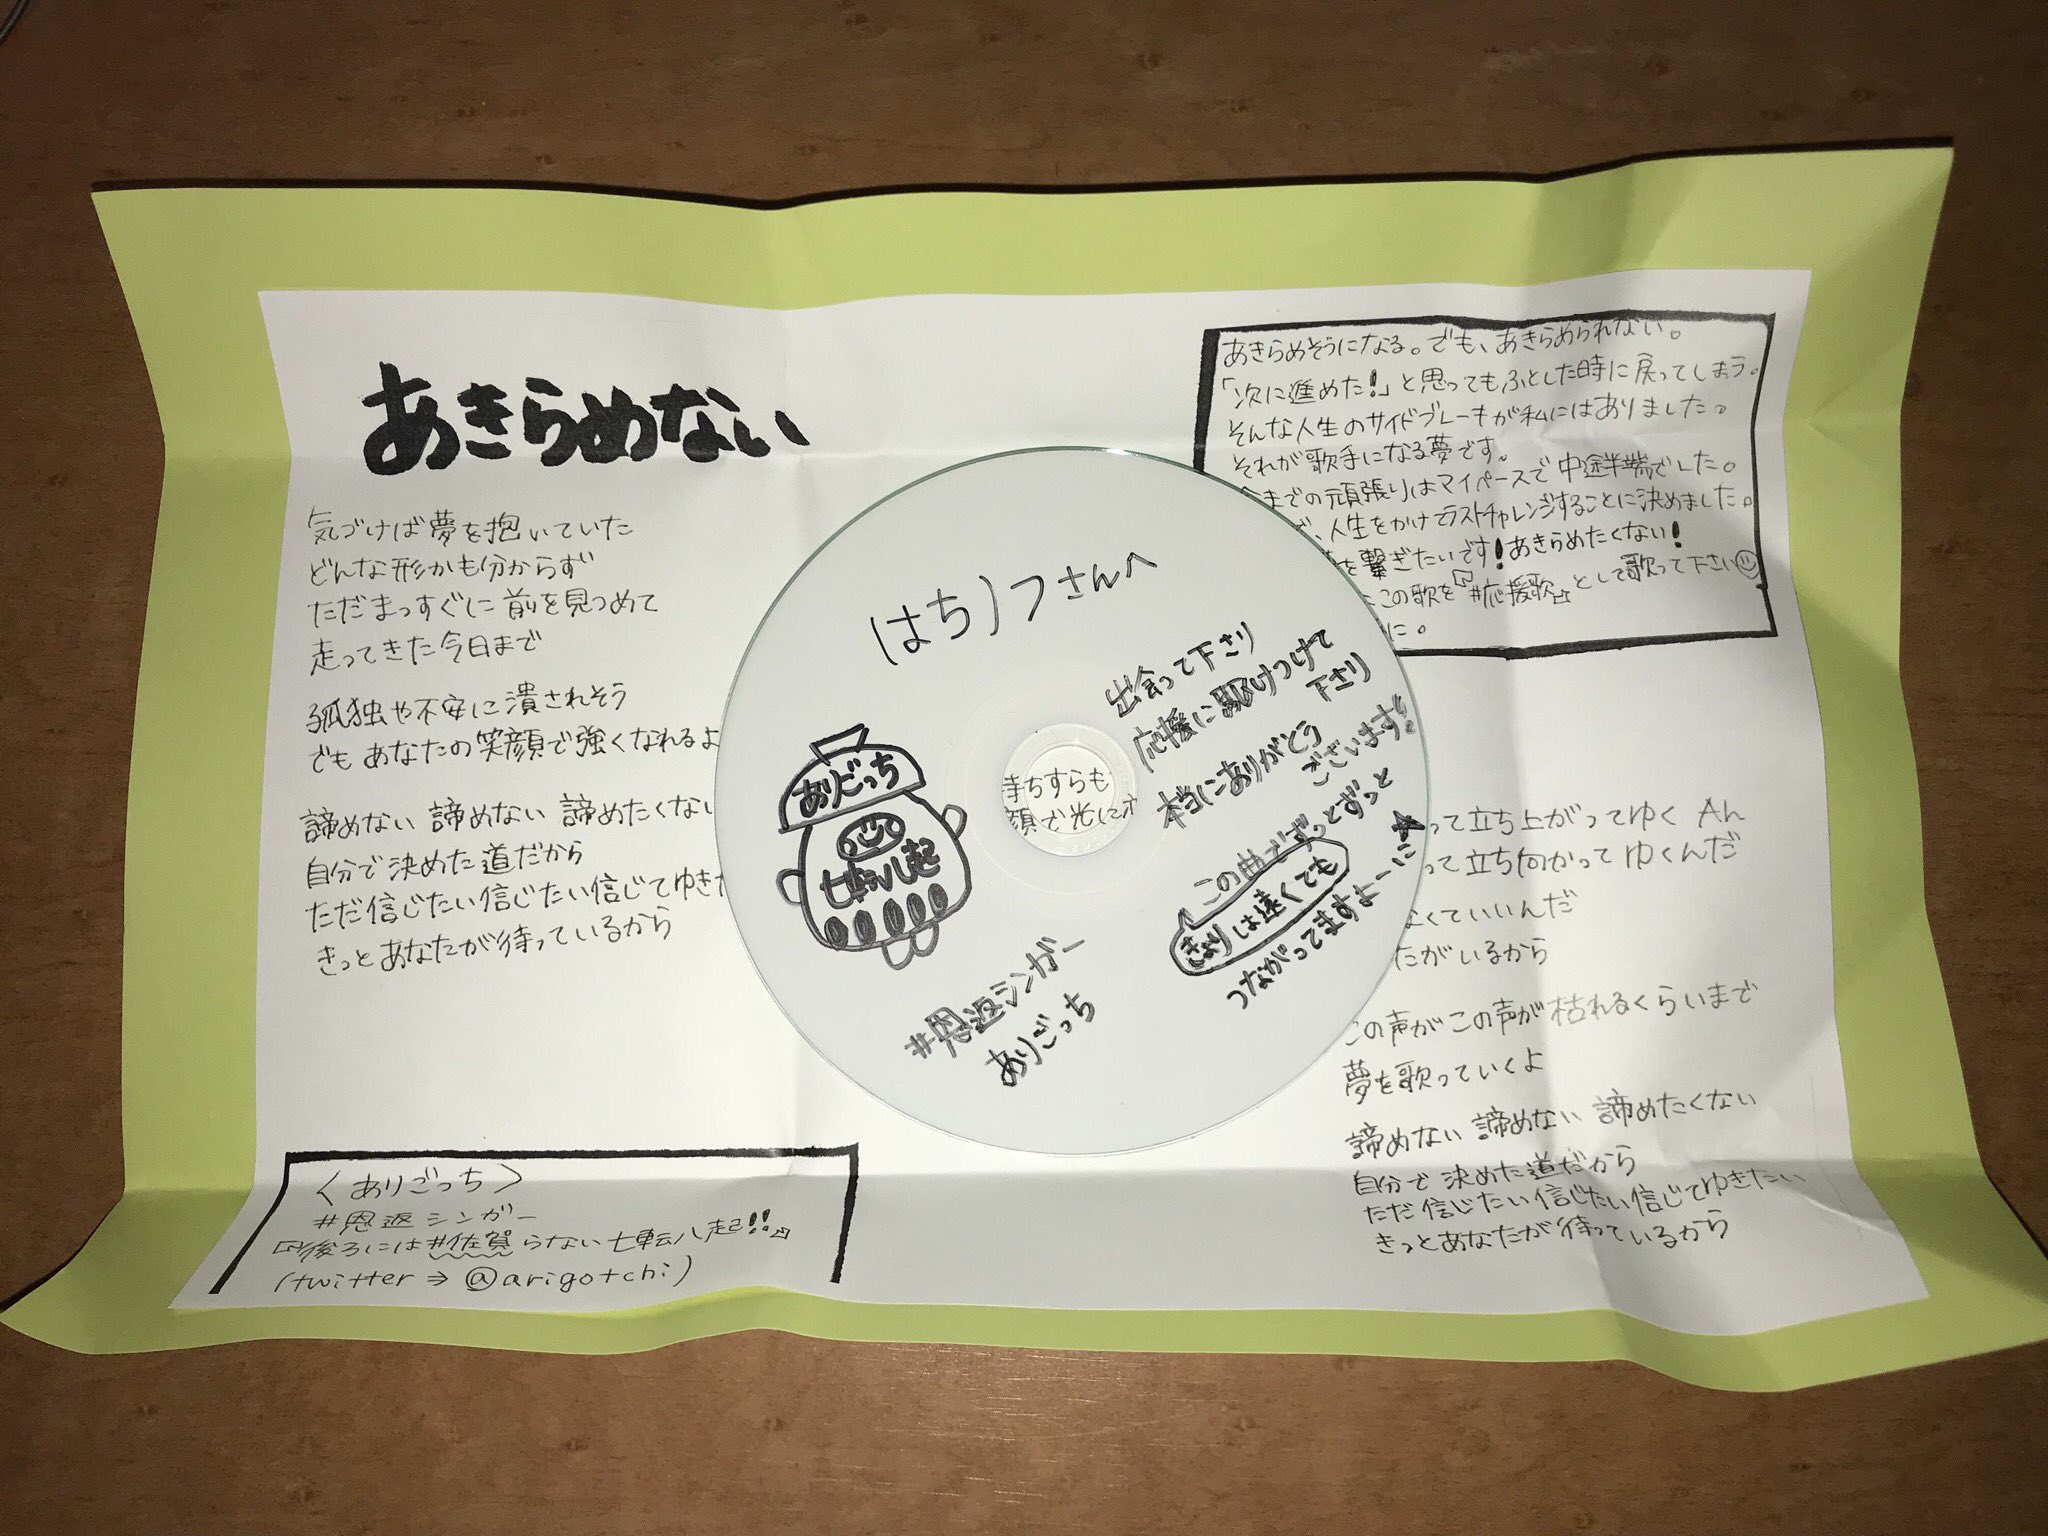 あきらめない
気づけば夢を抱いていた
どんな形かも分からず
ただまっすぐに前を見つめて
走ってきた今日まで
孤独や不安に潰されそう
でもあなたの笑顔で強くなれるよ
諦めない 諦めない 諦めたくない
自分で決めた道だから
ただ信じたい信じたい信じてゆきた
きっとあなたが待っているから
〈ありごっち〉
#恩返シンガー
『後ろには#佐賀らない七転八起!!』
(twitter⇒@arigotchi)
はちノフさんへ
出会って下さり
応援に駆けつけて
下さり
本当にありがとう
ございます!!
この曲でずっとずっと
きょりは遠くても
つながってますよーに★
#恩返シンガー
ありごっち
ありごっち
七転八起
持ちすらも
顔で光に
あきらめそうになる。でも、あきらめられない。
「次に進めた!」と思ってもふとした時に戻ってしまう。
そんな人生のサイドブレーキが私にはありました。
それが歌手になる夢です。
今までの頑張りはマイペースで中途半端でした。
で、人生をかけてラストチャレンジすることに決めました。
を繋ぎたいです!あきらめたくない!
この歌を『#応援歌』として歌って下さい
に。
って立ち上がってゆく
って立ち向かってゆくんだ
なくていいんだ
たがいるから
この声がこの声が枯れるくらいまで
夢を歌っていくよ
諦めない 諦めない 諦めたくない
自分で決めた道だから
ただ信じたい信じたい信じてゆきたい
きっとあなたが待っているから